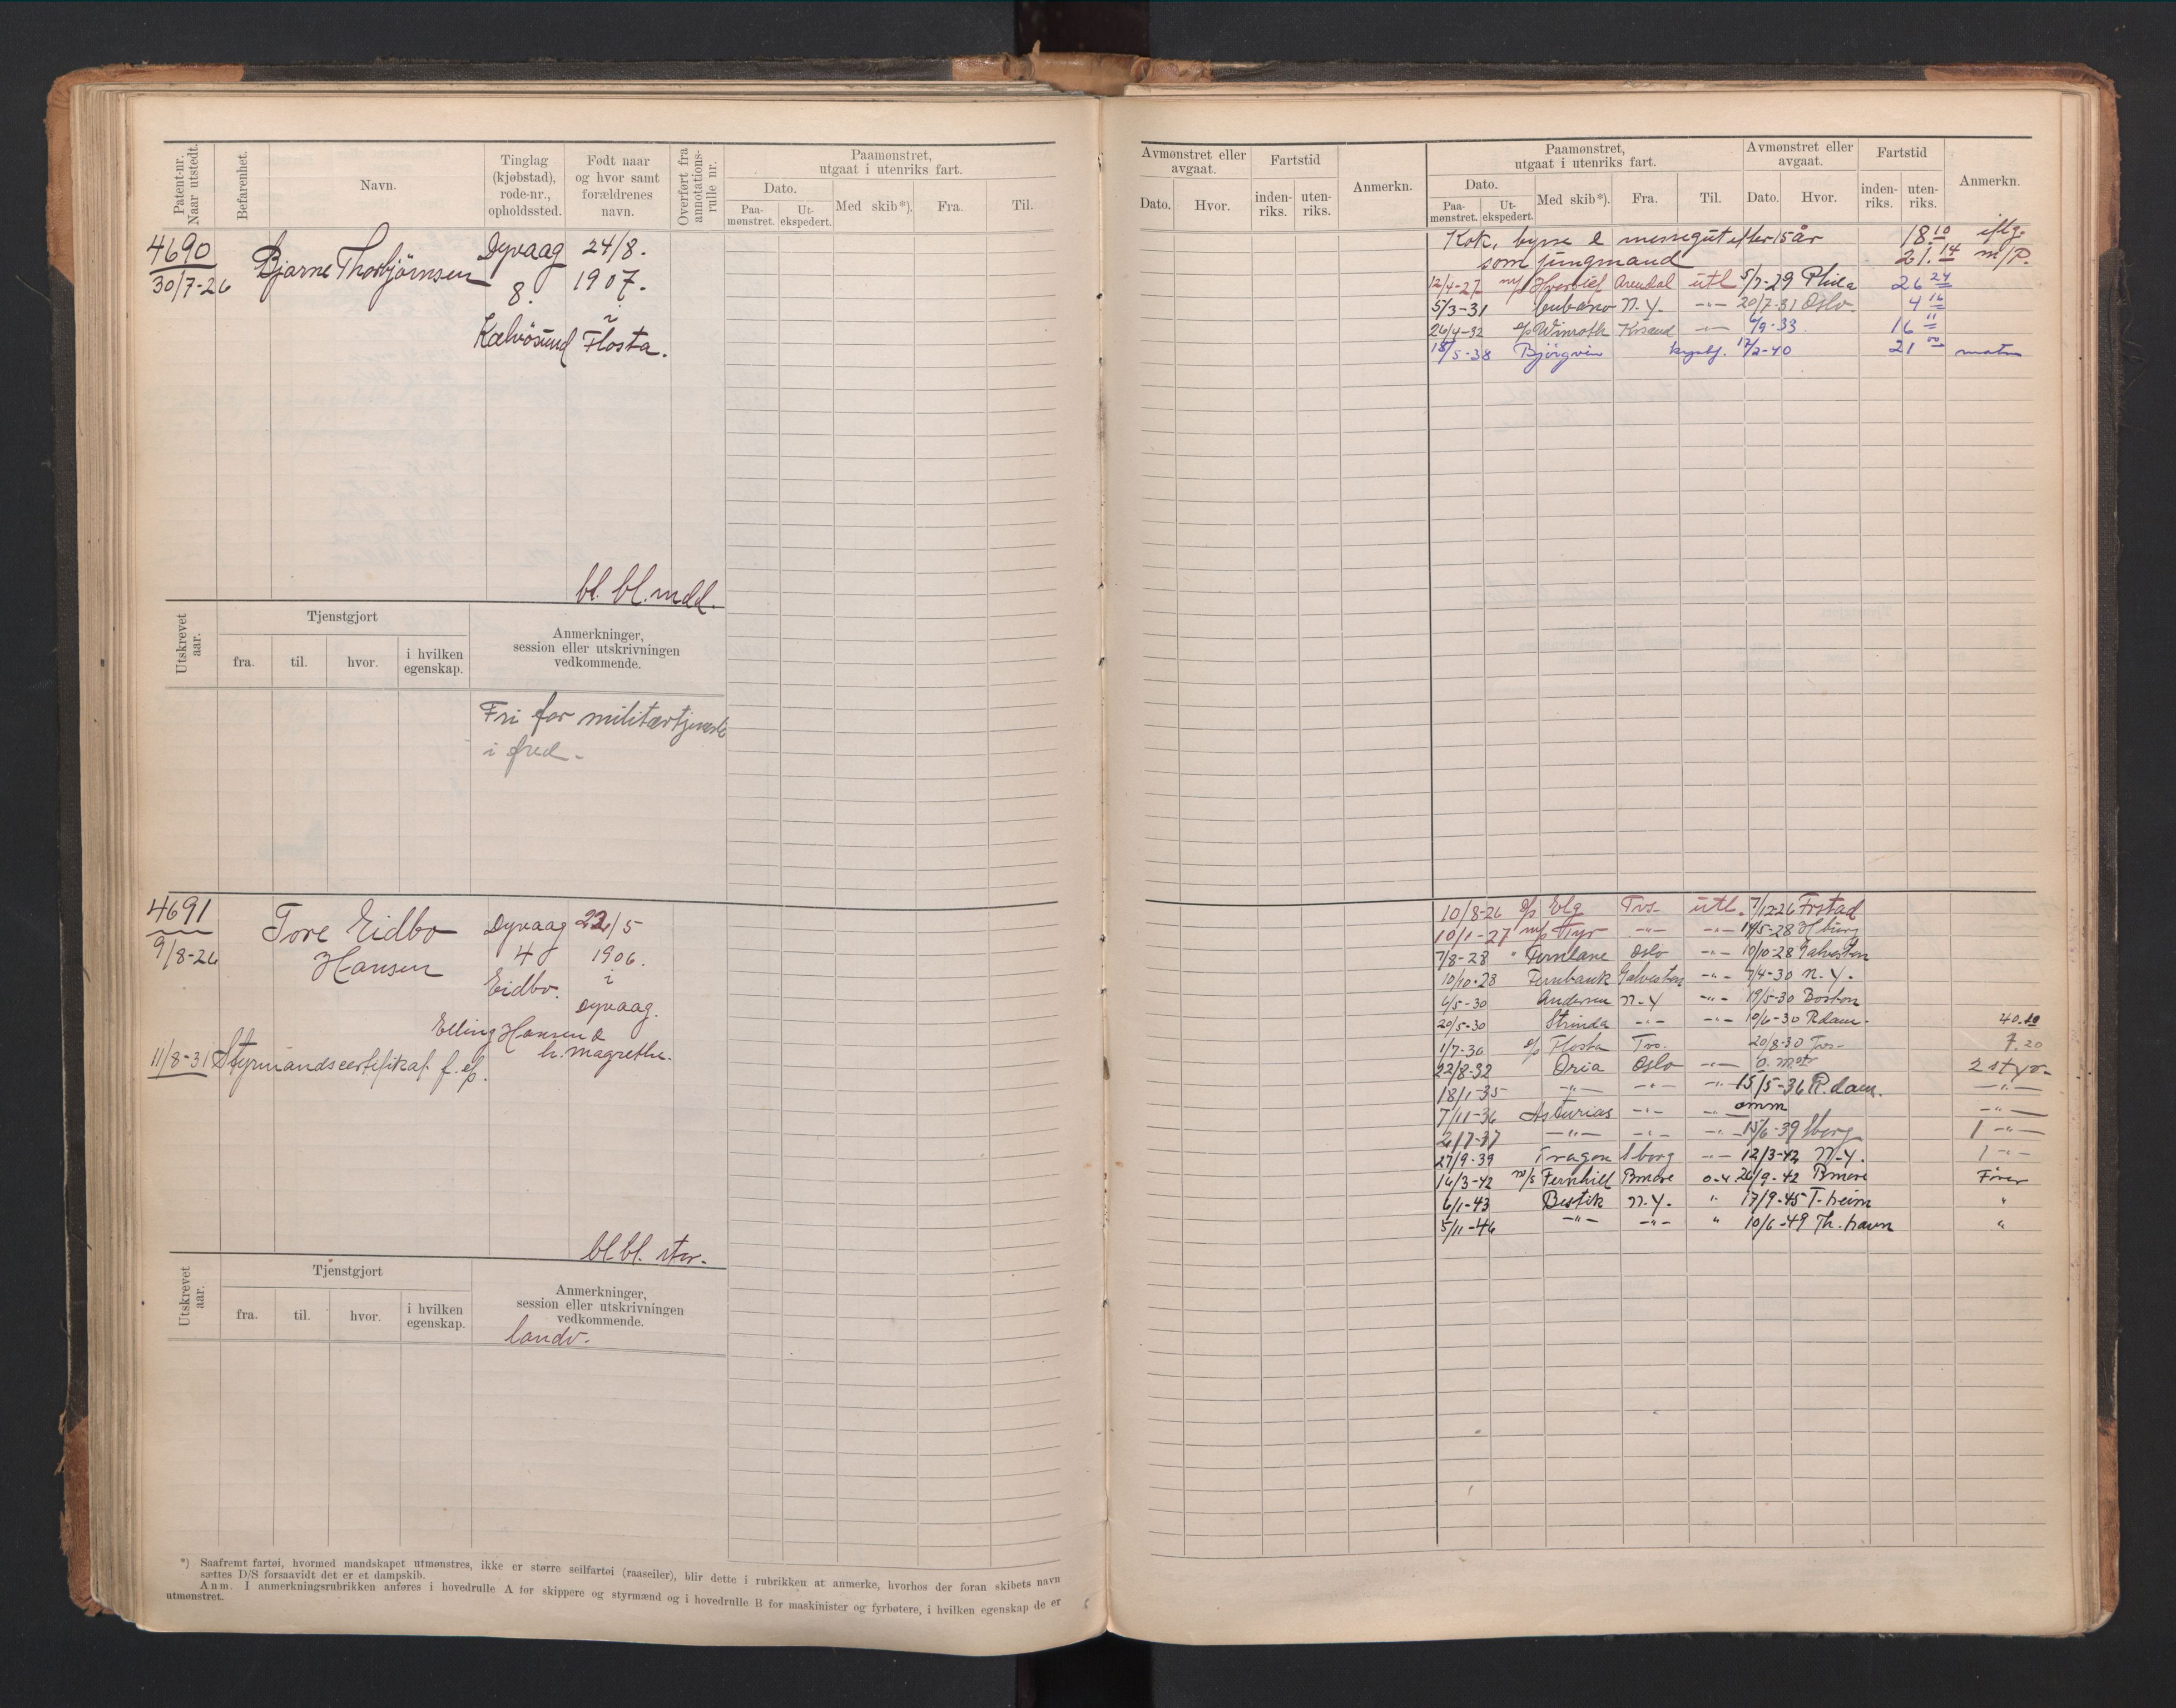 Patent-nr. Naar utstedt.
Befarenhet.
Navn.
Tinglag (kjøbstad), rode-nr., opholdssted.
Født naar og hvor samt forældrenes navn.
Overført fra annotations-rulle nr.
Paamønstret, utgaat i utenriks fart.
Dato.
Paa-mønstret.
Ut-ekspedert.
Med skib*).
Fra.
Til.
4690
30/7-26
Bjarne Thorbjörnsen
Dyvaag
8.
Kalvösund
24/8.
1907.
i
Flosta.
bl. bl. mdd.
Utskrevet aar.
Tjenstgjort
fra.
til.
hvor.
i hvilken egenskap.
Anmerkninger, session eller utskrivningen vedkommende.
Fri for militærtjeneste
i fred.
4691
9/8-26
Tore Eidbo
Hansen
Dyvaag
4
Eidbo.
22/5
1906.
i
Dyvaag.
Elling Hansen &
h. Magrethe.
11/8-31 Styrmandscertifikat f. s/s.
bl. bl. stor.
Utskrevet aar.
Tjenstgjort
fra.
til.
hvor.
i hvilken egenskap.
Anmerkninger, session eller utskrivningen vedkommende.
landv.
*) Saafremt fartøi, hvormed mandskapet utmønstres, ikke er større seilfartøi (raaseiler), blir dette i rubrikken at anmerke, hvorhos der foran skibets navn
sættes D/S forsaavidt det er et dampskib.
Anm. I anmerkningsrubrikken anføres i hovedrulle A for skippere og styrmænd og i hovedrulle B for maskinister og fyrbøtere, i hvilken egenskap de er
utmønstret.
Avmønstret eller avgaat.
Dato.
Hvor.
Fartstid
inden-riks.
uten-riks.
Anmerkn.
Paamønstret, utgaat i utenriks fart.
Dato.
Paa-mønstret.
Ut-ekspedert.
Med skib*).
Fra.
Til.
Avmønstret eller avgaat.
Dato.
Hvor.
Fartstid
inden-riks.
uten-riks.
Anmerkn.
Kok, bysse & messegut efter 15 år 18.10 iflg.
som jungmand 21.14 m/P.
12/4-27 Arendal utl 5/7-29 Phila 26 24
5/3-31 Cubano N.Y. -"- 20/7-31 Oslo. 4 16
26/4-32 s/s Winroth Krsand -"- 6/9-33. 16 11
18/5-38 Björgvin kystf. 12/2-40 21 00 matr
10/8-26 s/s Elg Tvs. utl. 7/12-26 Frstad
10/1-27 m/s Tyr -"- -"- 14/5-28 Hburg
7/8-28 " Fernlane Oslo -"- 10/10-28 Galveston
10/10-28 Fernbank Galveston -"- 9/4-30 N.Y.
6/5-30 Andersen N.Y -"- 19/5-30 Boston
20/5-30 Strinda -"- -"- 10/6-30 Rdam. 40.10
1/7-30 s/s Flosta Tvs. 20/8-30 Tvs- 7.20
22/8-32 Oria Oslo -"- 2 styr.
18/1-35 -"- -"- -"- 15/5-36 R.dam. -"-
7/11-36 Asturias -"- -"- omm -"-
2/7-37 -"- -"- -"- 15/6-39 Sborg 1 -"-
27/9-39 Tragon Sborg -"- 12/3-42 N.Y. 1 -"-
16/3-42 m/s Fernhill Bmore 26/9-42 Bmore Fører
6/1-43 Bestik N.Y. " 17/9-45 T.heim "
5/11-46 -"- -"- " 10/6-49 Th.havn "